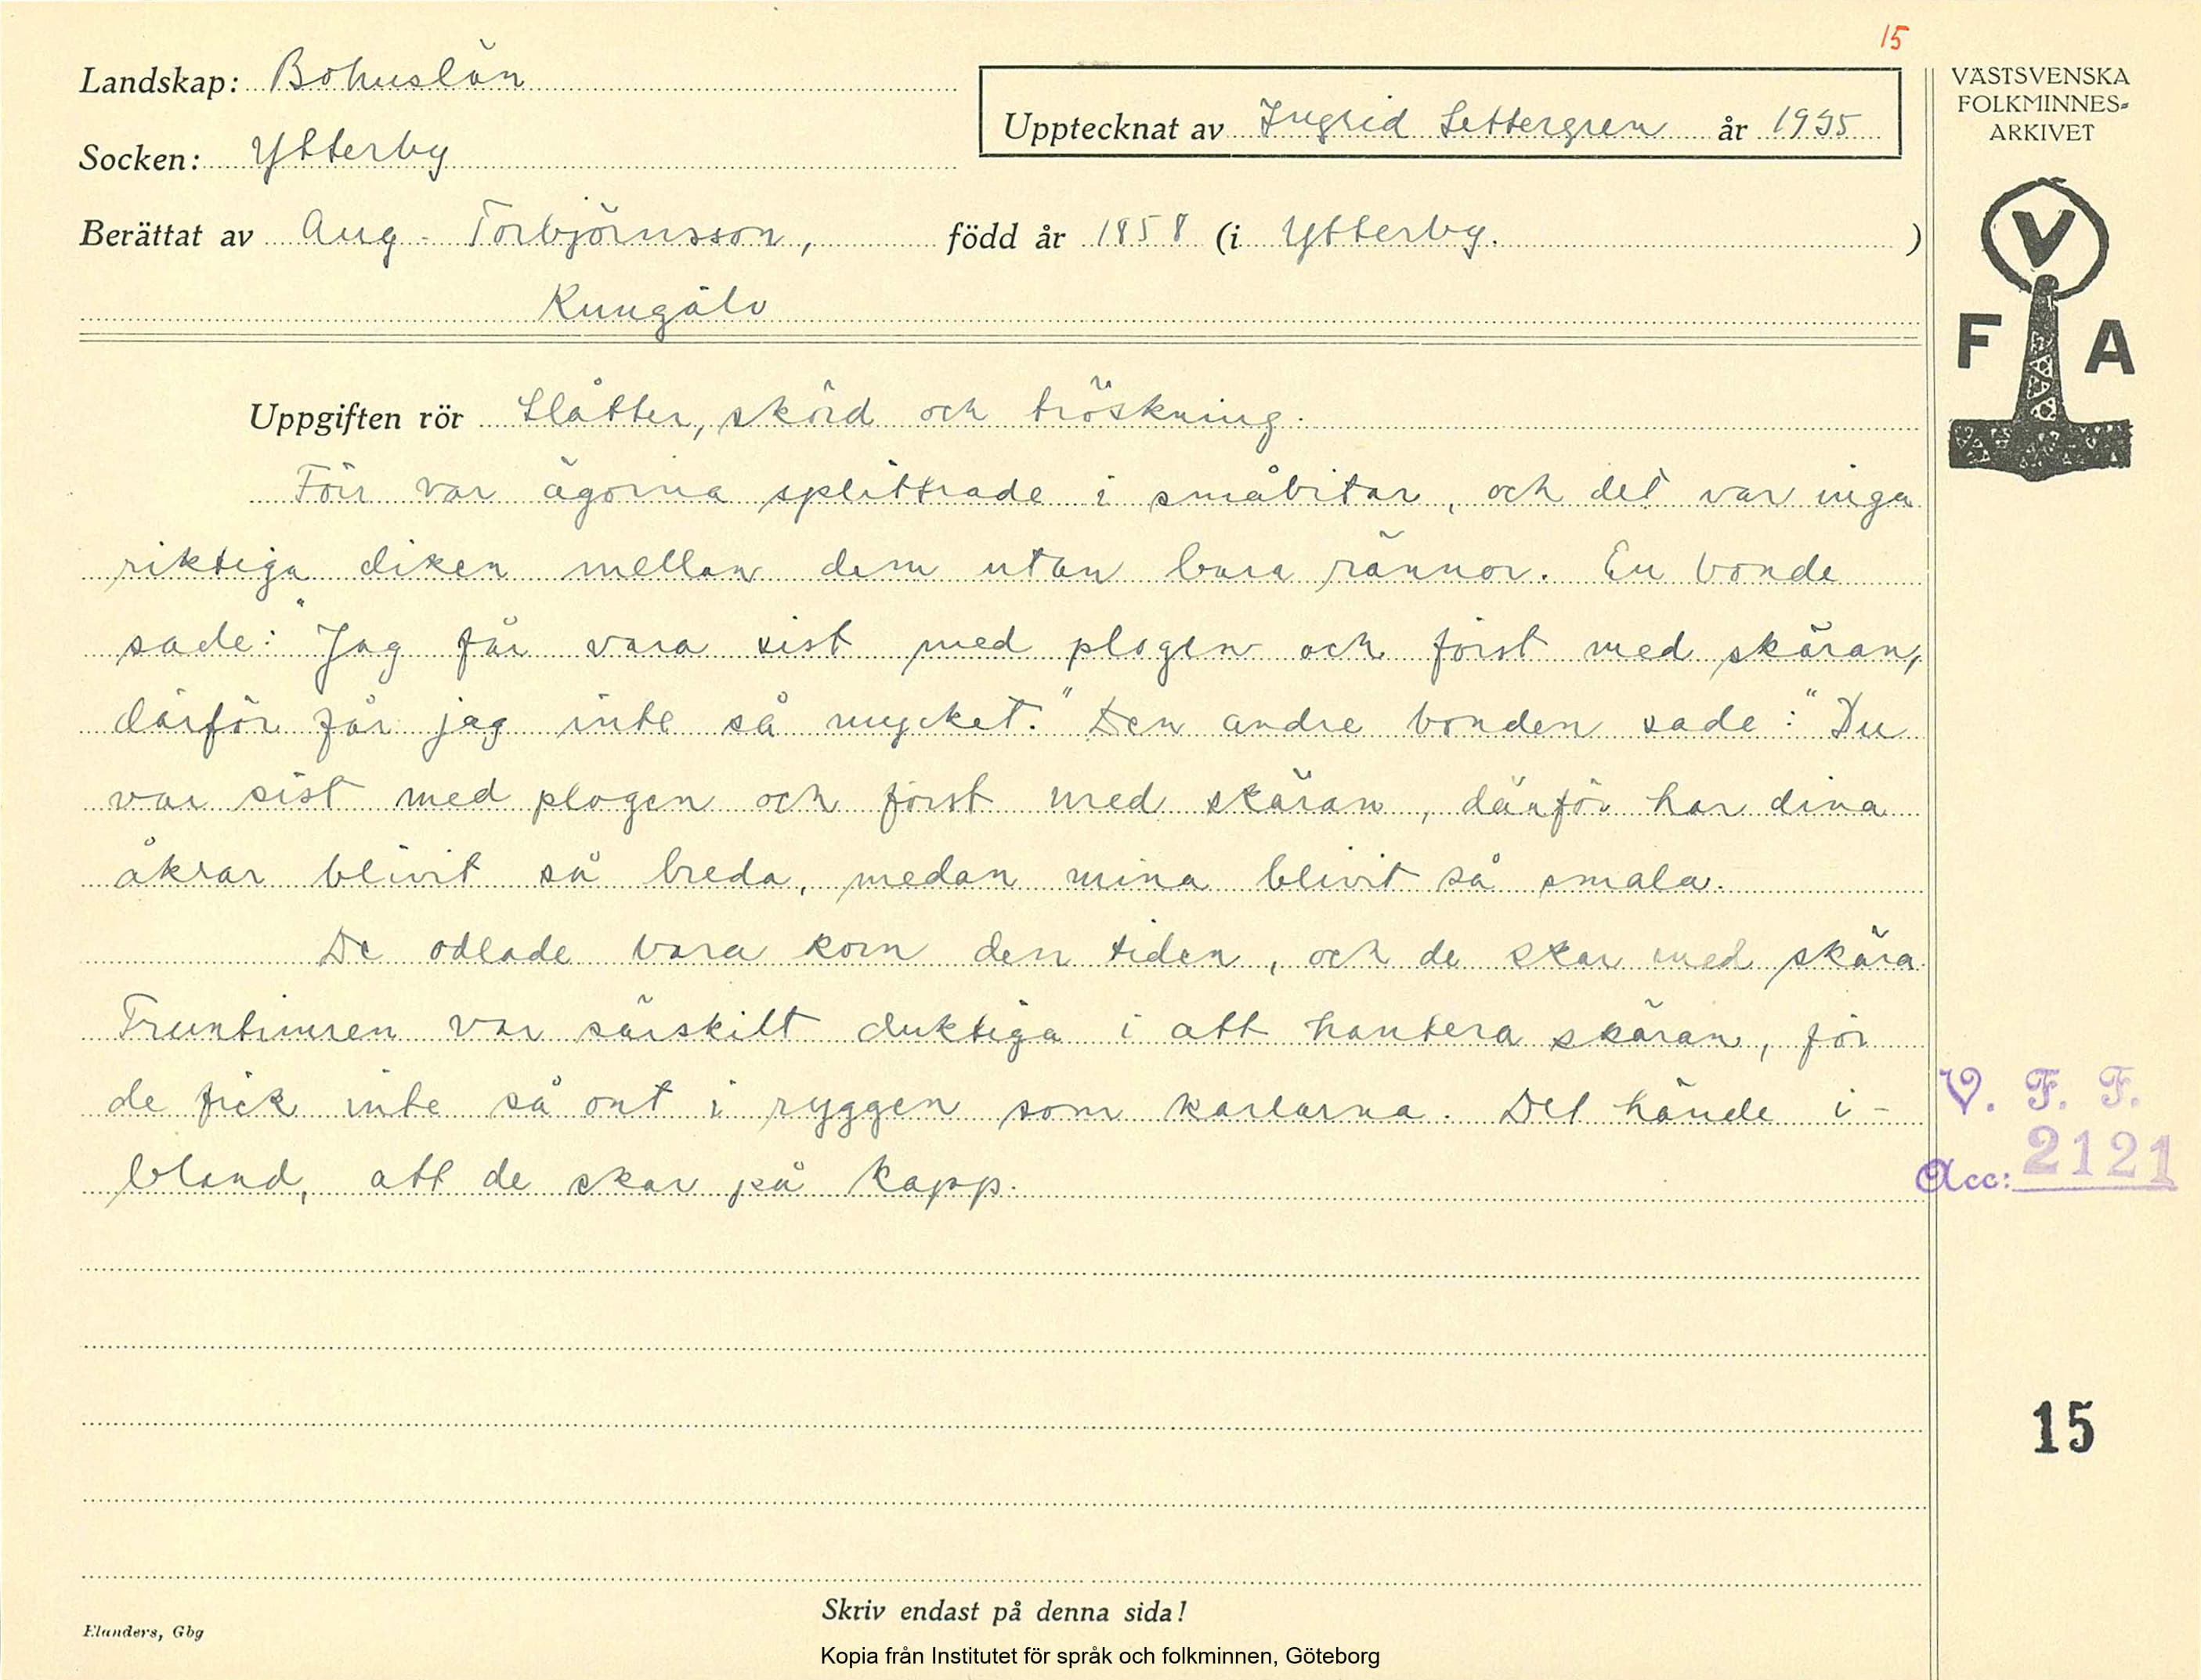 15
Landskap: Bohuslän
Socken: Ytterby
Upptecknat av Ingrid Settergren år 1935
Berättat av Aug. Torbjörnsson, född år 1858 (i Ytterby. )
Kungälv
Uppgiften rör Slåtter, skörd och tröskning.
Förr var ägorna splittrade i småbitar, och det var inga
riktiga diken mellan dem utan bara rännor. En bonde
sade: "Jag får vara sist med plogen och först med skäran,
därför får jag inte så mycket." Den andre bonden sade: "Du
var sist med plogen och först med skäran, därför har dina
åkrar blivit så breda, medan mina blivit så smala.
De odlade bara korn den tiden, och de skar med skära.
Fruntimren var särskilt duktiga i att hantera skäran, för
de fick inte så ont i ryggen som karlarna. Det hände i-
bland, att de skar på kapp.
Skriv endast på denna sida!
Elanders, Gbg
Kopia från Institutet för språk och folkminnen, Göteborg
VÄSTSVENSKA
FOLKMINNES-
ARKIVET
V
F A
V. F. F.
Acc: 2121
15